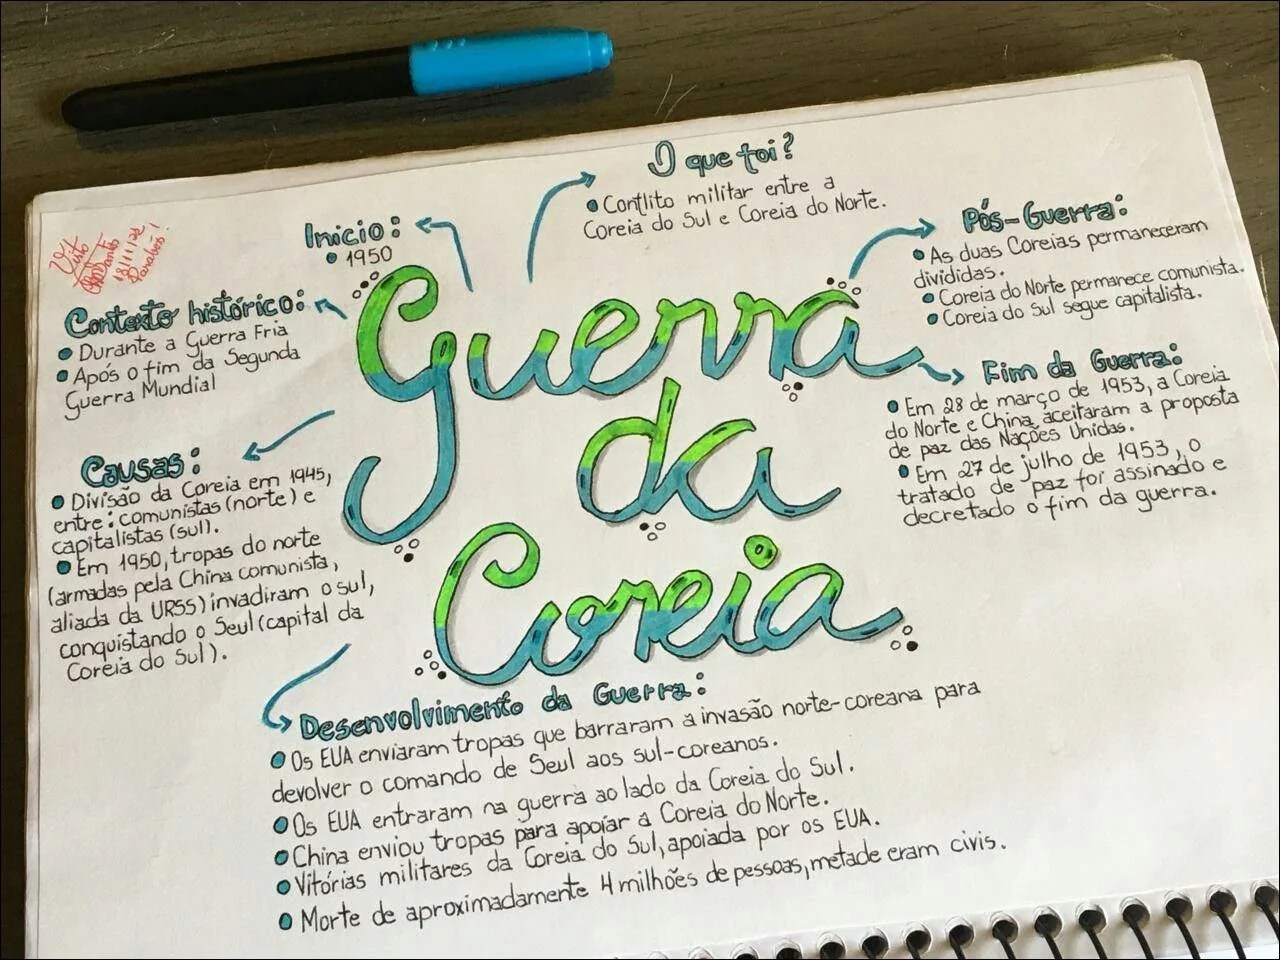 O que foi?
• Conflito militar entre a
Coreia do Sul e Coreia do Norte.
Inicio:
• 1950
Visto
Santos
18/11/22
Parabéns!
Contexto histórico:
• Durante a Guerra Fria
• Após o fim da Segunda
Guerra Mundial
Causas:
• Divisão da Coreia em 1945,
entre: comunistas (norte) e
capitalistas (sul).
• Em 1950, tropas do norte
(armadas pela China comunista,
aliada da URSS) invadiram o sul,
conquistando o Seul (capital da
Coreia do Sul).
Guerra
da
Coreia
Pós-Guerra:
• As duas Coreias permaneceram
divididas.
• Coreia do Norte permanece comunista.
• Coreia do Sul segue capitalista.
Fim da Guerra:
• Em 28 de março de 1953, a Coreia
do Norte e China, aceitaram a proposta
de paz das Nações Unidas.
• Em 27 de julho de 1953, o
tratado de paz foi assinado e
decretado o fim da guerra.
Desenvolvimento da Guerra:
• Os EUA enviaram tropas que barraram a invasão norte-coreana para
devolver o comando de Seul aos sul-coreanos.
• Os EUA entraram na guerra ao lado da Coreia do Sul.
• China enviou tropas para apoiar a Coreia do Norte.
• Vitórias militares da Coreia do Sul, apoiada por os EUA.
• Morte de aproximadamente 4 milhões de pessoas, metade eram civis.